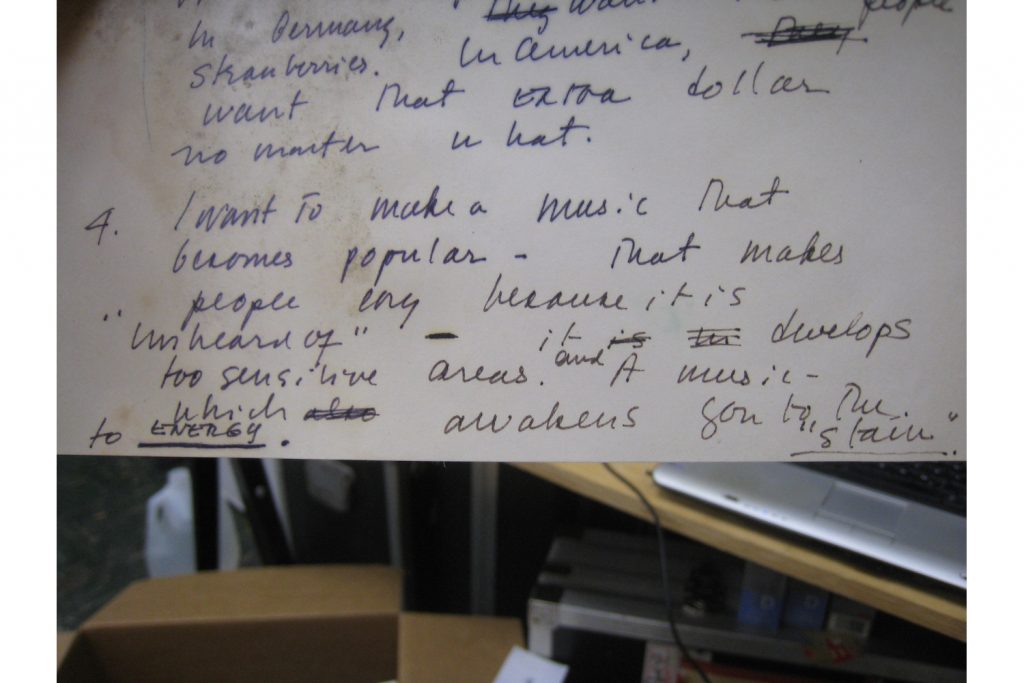 In Germany, ~~They~~ want people
strawberries. In America, ~~They~~.
want that EXTRA dollar
no matter what.
4. I want to make a music that
becomes popular - That makes
people cry because it is
"unheard of" - it ~~is~~ develops
too sensitive areas. and A music -
which ~~also~~ awakens you to, the "stain".
to ENERGY.